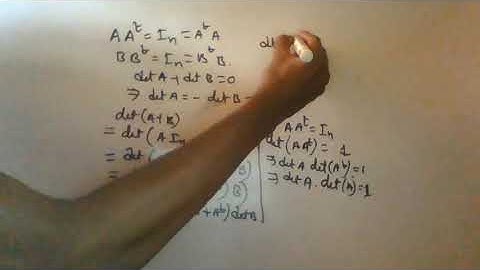 AAᵗ = Iₙ = AᵗA
BBᵗ = Iₙ = BᵗB.
det A + det B = 0
⇒ det A = - det B -
det (A+B)
= det (A Iₙ
= det (
=
B)
+ Aᵗ) det B
AAᵗ = Iₙ
det (AAᵗ) = 1
⇒ det A det (Aᵗ) = 1
⇒ det A . det (A) = 1